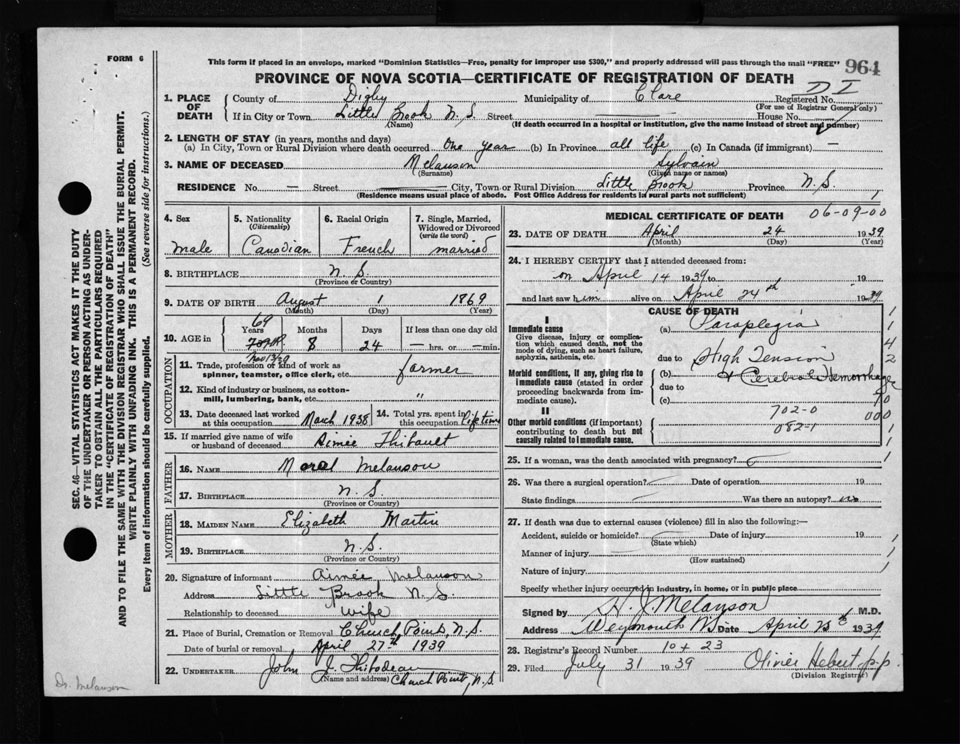 FORM 6
This form if placed in an envelope, marked "Dominion Statistics—Free, penalty for improper use $300," and properly addressed will pass through the mail "FREE" 964
PROVINCE OF NOVA SCOTIA—CERTIFICATE OF REGISTRATION OF DEATH
1. PLACE OF DEATH { County of Digby Municipality of Clare Registered No.
(For use of Registrar General only)
If in City or Town Little Brook N.S. Street House No.
(Name) (If death occurred in a hospital or institution, give the name instead of street and number)
2. LENGTH OF STAY (in years, months and days)
(a) In City, Town or Rural Division where death occurred One year (b) In Province all life (c) In Canada (if immigrant) —
3. NAME OF DECEASED Melanson Sylvain
(Surname) (Given name or names)
RESIDENCE No. — Street City, Town or Rural Division Little Brook Province N.S.
(Residence means usual place of abode. Post Office Address for residents in rural parts not sufficient)
4. Sex 5. Nationality (Citizenship) 6. Racial Origin 7. Single, Married, Widowed or Divorced (write the word)
male Canadian French married
8. BIRTHPLACE N.S.
(Province or Country)
9. DATE OF BIRTH August 1 1869
(Month) (Day) (Year)
10. AGE in { Years Months Days If less than one day old
69 8 24 — hrs. or — min.
OCCUPATION
11. Trade, profession or kind of work as spinner, teamster, office clerk, etc. farmer
12. Kind of industry or business, as cotton-mill, lumbering, bank, etc. "
13. Date deceased last worked at this occupation March 1938 14. Total yrs. spent in this occupation Lifetime
15. If married give name of wife or husband of deceased Aimée Thibault
FATHER
16. NAME Moral Melanson
17. BIRTHPLACE N.S.
(Province or Country)
MOTHER
18. MAIDEN NAME Elizabeth Martin
19. BIRTHPLACE N.S.
(Province or Country)
20. Signature of informant Aimée Melanson
Address Little Brook N.S.
Relationship to deceased Wife
21. Place of Burial, Cremation or Removal Church Point, N.S.
Date of burial or removal April 27th 1939
22. UNDERTAKER John J. Thibodeau
(Name and address) Church Point, N.S.
MEDICAL CERTIFICATE OF DEATH 06-09-00
23. DATE OF DEATH April 24 1939
(Month) (Day) (Year)
24. I HEREBY CERTIFY that I attended deceased from:
on April 14 1939 to 19
and last saw him alive on April 24th 1939
CAUSE OF DEATH
I
Immediate cause (a) Paraplegia
Give disease, injury or complication which caused death, not the mode of dying, such as heart failure, asphyxia, asthenia, etc.
due to High Tension
Morbid conditions, if any, giving rise to immediate cause (stated in order proceeding backwards from immediate cause).
(b) & Cerebral Hemorrhage
due to
(c)
II
702-0
Other morbid conditions (if important) contributing to death but not causally related to immediate cause.
082-1
25. If a woman, was the death associated with pregnancy?
26. Was there a surgical operation? Date of operation 19
State findings Was there an autopsy? no
27. If death was due to external causes (violence) fill in also the following:—
Accident, suicide or homicide? Date of injury 19
(State which)
Manner of injury
(How sustained)
Nature of injury
Specify whether injury occurred in industry, in home, or in public place
Signed by H. J. Melanson M.D.
Address Weymouth N.S. Date April 25th 1939
28. Registrar's Record Number 10 + 23
29. Filed July 31 1939 Olivier Hebert p.p.
(Division Registrar)
SEC. 46—VITAL STATISTICS ACT MAKES IT THE DUTY
OF THE UNDERTAKER OR PERSON ACTING AS UNDER-
TAKER TO OBTAIN ALL THE PARTICULARS REQUIRED
IN THE "CERTIFICATE OF REGISTRATION OF DEATH"
AND TO FILE THE SAME WITH THE DIVISION REGISTRAR WHO SHALL ISSUE THE BURIAL PERMIT.
WRITE PLAINLY WITH UNFADING INK. THIS IS A PERMANENT RECORD.
Every item of information should be carefully supplied. (See reverse side for instructions.)
Dr. Melanson